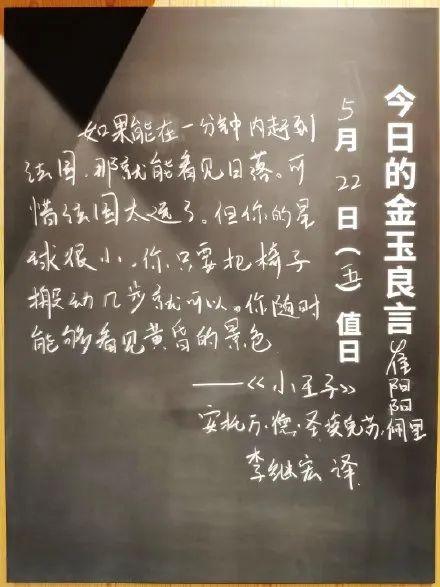 今日的金玉良言
5月22日(五)值日 崔阳阳
如果能在一分钟内赶到
法国,那就能看见日落。可
惜法国太远了。但你的星
球很小,你只要把椅子
搬动几步就可以。你随时
能够看见黄昏的景色
——《小王子》
安托万·德·圣埃克苏·佩里
李继宏 译